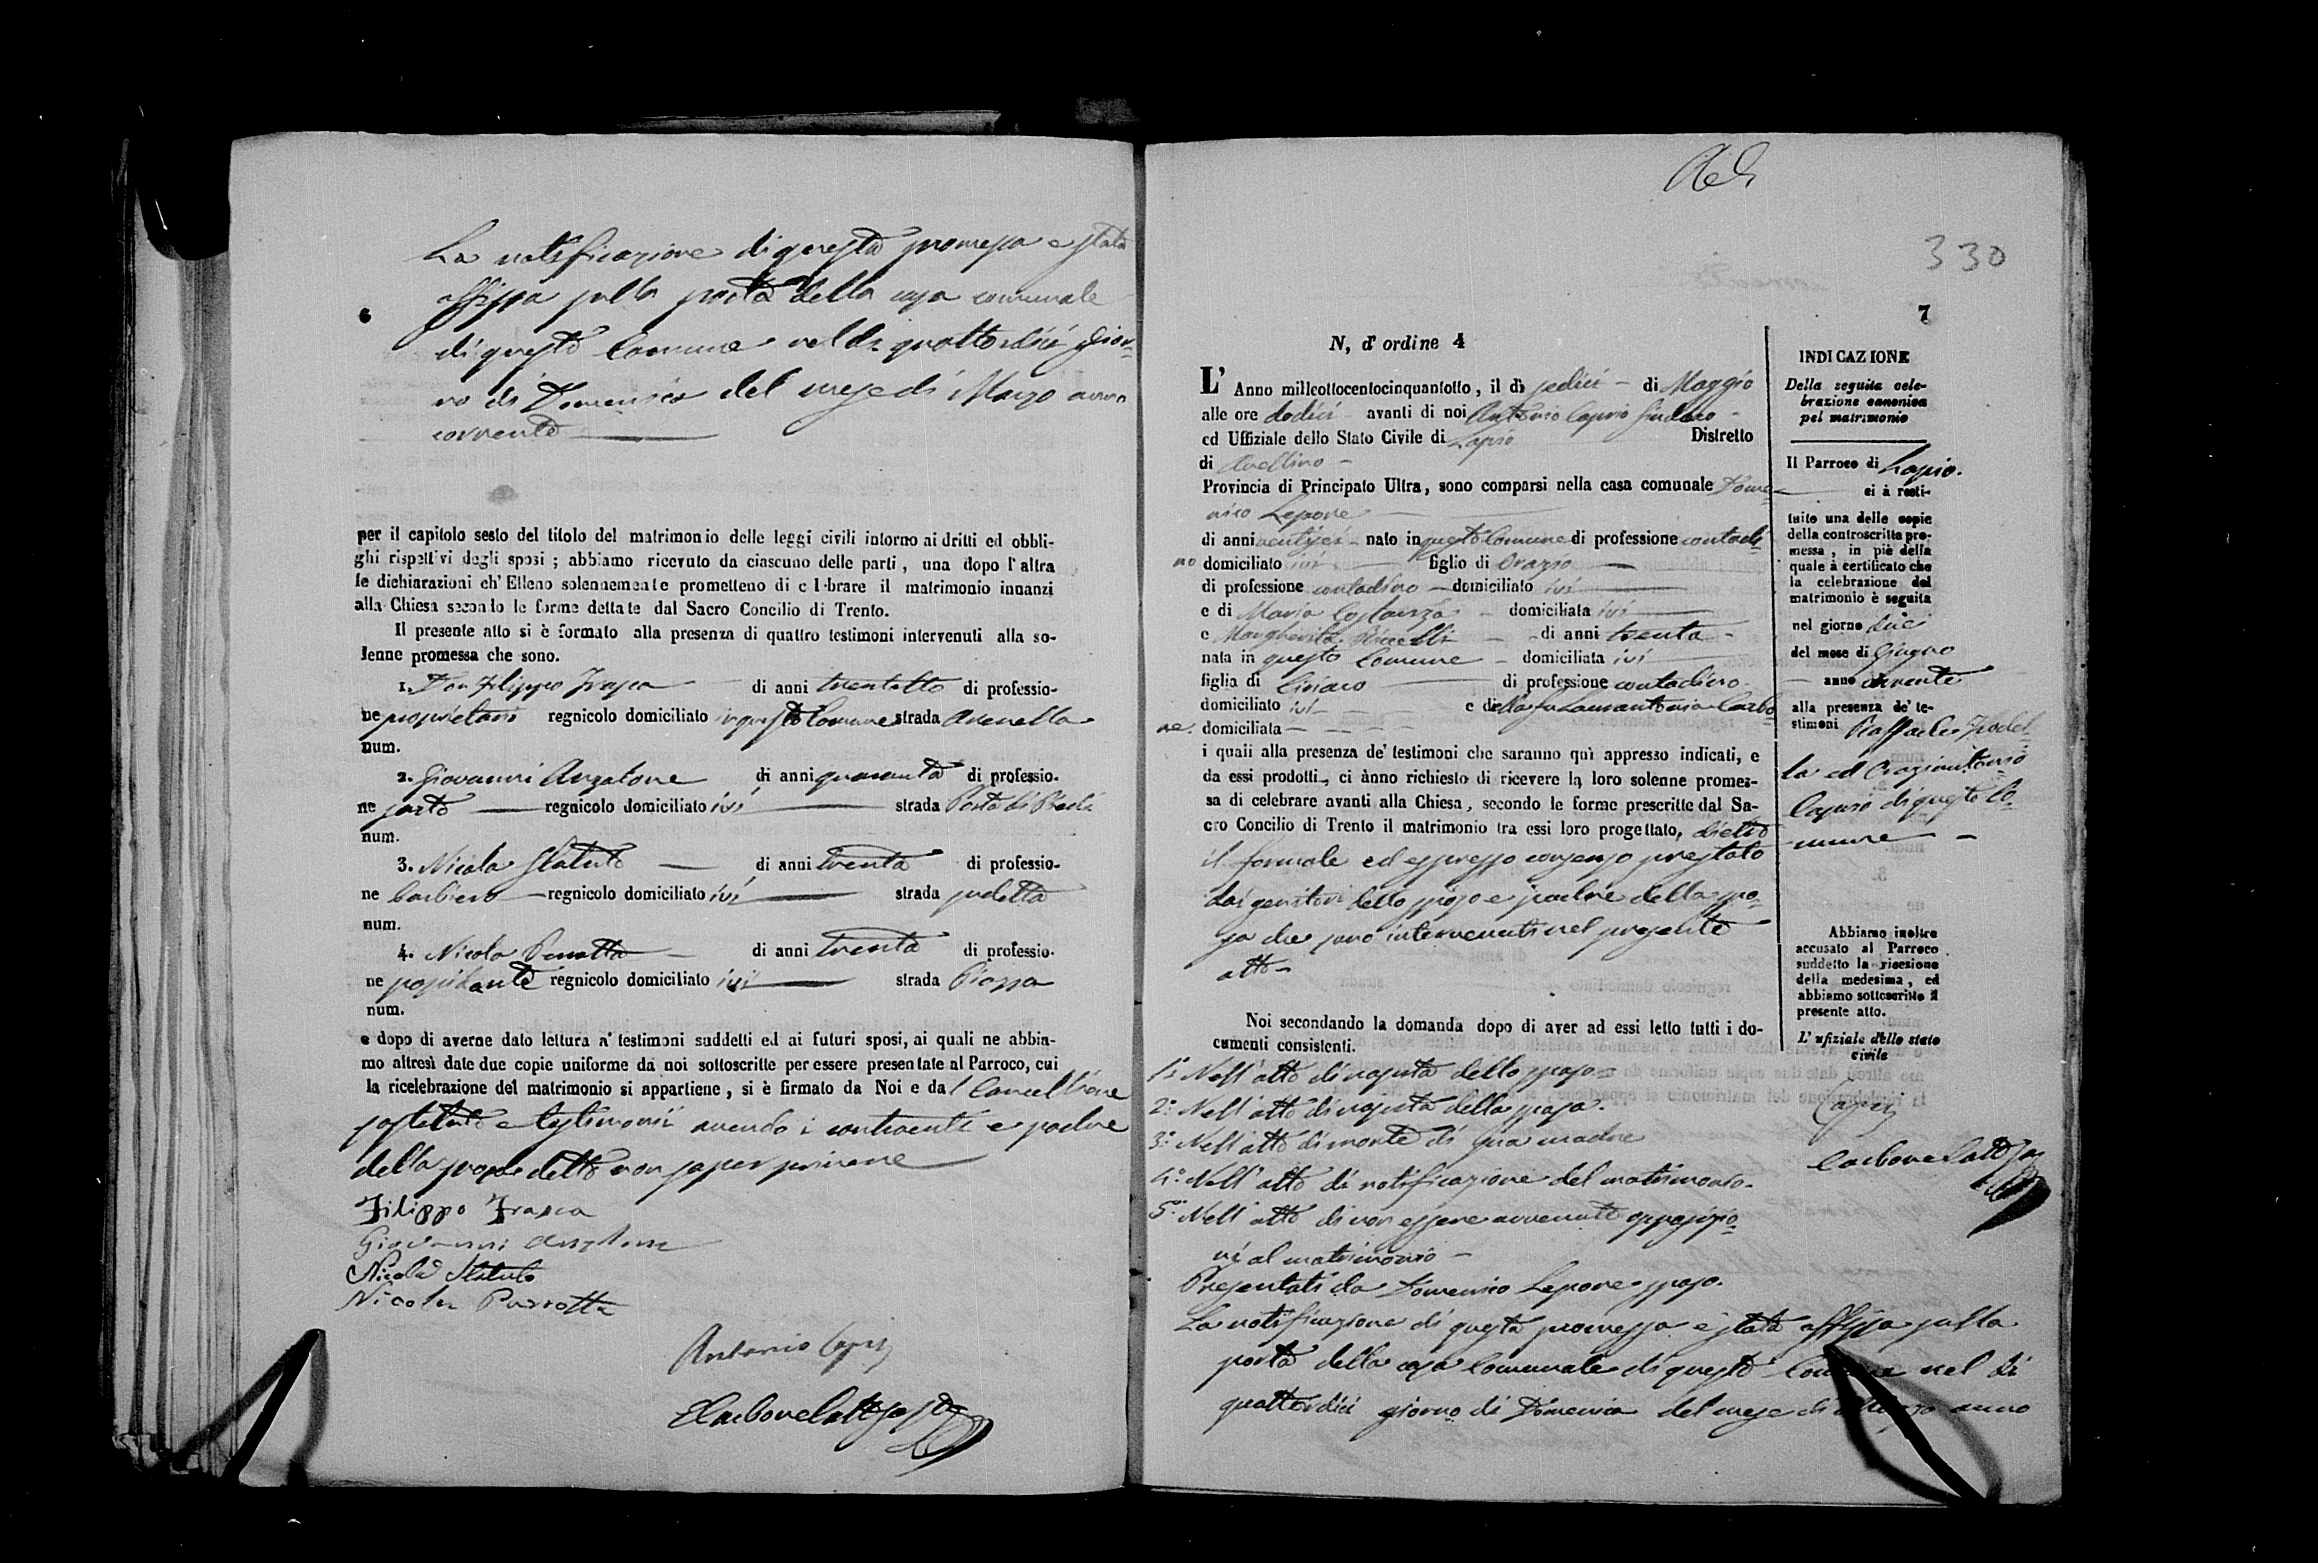 La notificazione di questa promessa è stata
affissa sulla porta della casa comunale
di questo Comune nel dì quattordici gior-
no di Domenica del mese di Marzo anno
corrente
per il capitolo sesto del titolo del matrimonio delle leggi civili intorno ai dritti ed obbli-
ghi rispettivi degli sposi ; abbiamo ricevuto da ciascuno delle parti , una dopo l'altra
le dichiarazioni ch' Elleno solennemente prometteno di c l-brare il matrimonio innanzi
alla Chiesa secondo le forme dettate dal Sacro Concilio di Trento.
Il presente atto si è formato alla presenza di quattro testimoni intervenuti alla so-
lenne promessa che sono.
1. Don Filippo Frasca di anni trentotto di professio-
ne proprietario regnicolo domiciliato in questo Comune strada Arenella
num.
2. Giovanni Anzalone di anni quaranta di professio-
ne sarto regnicolo domiciliato ivi strada Porta di
num.
3. Nicola Statuto di anni trenta di professio-
ne barbiere regnicolo domiciliato ivi strada sudetta
num.
4. Nicola Parrotta di anni trenta di professio-
ne possidente regnicolo domiciliato ivi strada Piazza
num.
e dopo di averne dato lettura a' testimoni suddetti ed ai futuri sposi, ai quali ne abbia-
mo altresì date due copie uniforme da noi sottoscritte per essere presentate al Parroco, cui
la ricelebrazione del matrimonio si appartiene , si è firmato da Noi e da l Cancelliere
sostituto e testimonii avendo i contraenti e padre
della sposa detto non saper scrivere
Filippo Frasca
Giovanni Anzalone
Nicola Statuto
Nicola Parrotta
Antonio Caprio
Carbone
330
7
N, d' ordine 4
L' Anno millcottocentocinquantotto , il dì sedici di Maggio
alle ore dodici avanti di noi Antonio Caprio Sindaco
ed Uffiziale dello Stato Civile di Lapio Distretto
di Avellino
Provincia di Principato Ultra, sono comparsi nella casa comunale Dome-
nico Lepore
di anni ventisei nato in questo Comune di professione contadi-
no domiciliato ivi figlio di Orazio
di professione contadino domiciliato ivi
e di Maria Costanza domiciliata ivi
e Margherita di anni trenta
nata in questo Comune domiciliata ivi
figlia di Ciriaco di professione contadino
domiciliato ivi e della fu Lamantonia Carbo-
ne. domiciliata
i quaii alla presenza de' testimoni che saranno quì appresso indicati, e
da essi prodotti, ci ànno richiesto di ricevere la loro solenne promes-
sa di celebrare avanti alla Chiesa , secondo le forme prescritte dal Sa-
cro Concilio di Trento il matrimonio tra essi loro progettato, dietro
il formale ed espresso consenso prestato
dai genitori dello sposo e padre della spo-
sa che sono intervenuti nel presente
atto
Noi secondando la domanda dopo di aver ad essi letto tutti i do-
cumenti consistenti.
1º. Nell' atto di nascita dello sposo
2º. Nell' atto di nascita della sposa.
3º. Nell' atto di morte di sua madre
4º. Nell' atto di notificazione del matrimonio.
5º. Nell' atto di non essere avvenute opposizio-
ni al matrimonio
Presentati da Domenico Lepore sposo.
La notificazione di questa promessa è stata affissa sulla
porta della casa Comunale di questo Comune nel dì
quattordici giorno di Domenica del mese di Marzo anno
INDICAZIONE
Della seguita cele-
brazione canonica
pel matrimonio
Il Parroco di Lapio.
ci à resti-
tuito una delle copie
della controscritta pro-
messa , in piè della
quale à certificato che
la celebrazione del
matrimonio è seguita
nel giorno due
del mese di Giugno
anno corrente
alla presenza de' te-
stimoni Raffaele
ed Oraziantonio
Caprio di questo Co-
mune
Abbiamo inoltre
accusato al Parroco
suddetto la ricezione
della medesima, ed
abbiamo sottoscritto il
presente atto.
L' ufiziale dello stato
civile
Caprio
Carbone